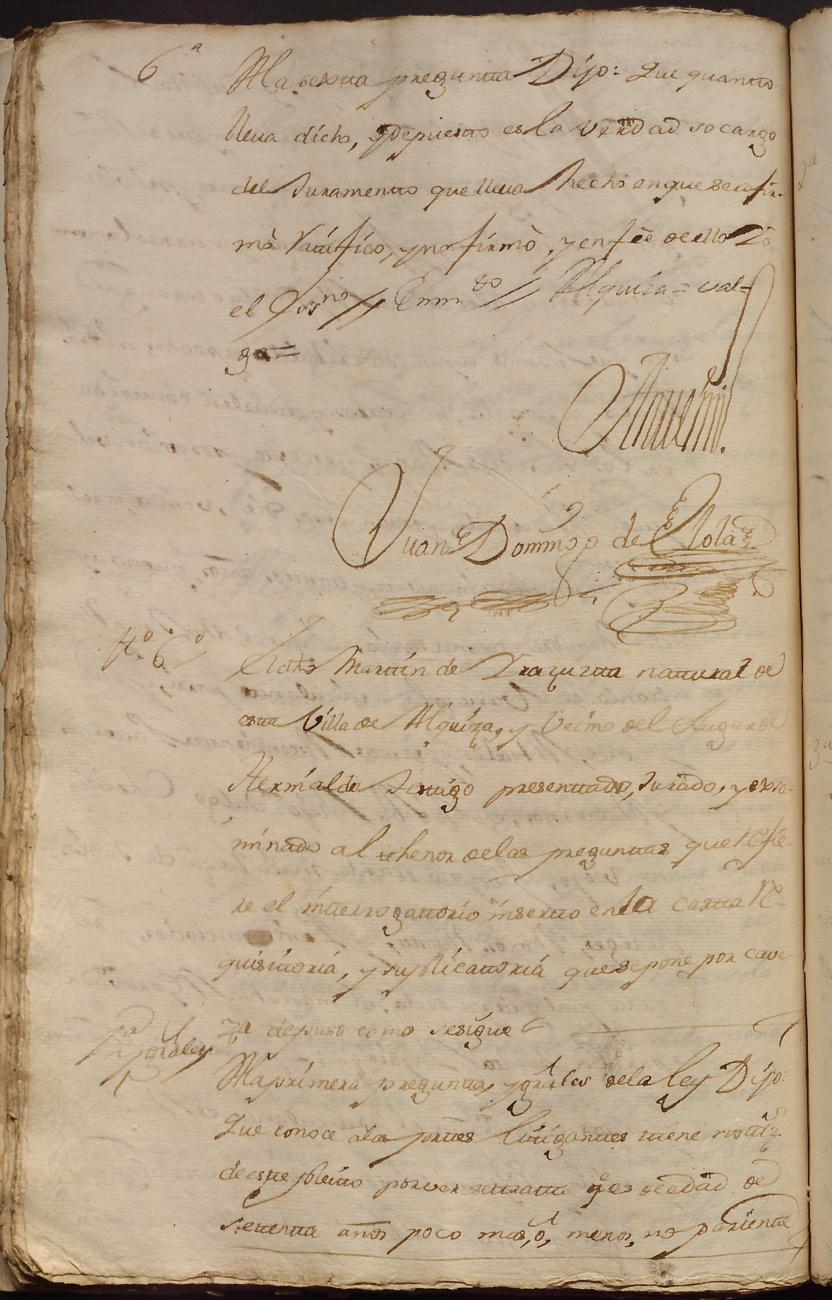 6ª
A la sexta pregunta Dijo: Que quanto
lleva dicho, y depuesto es la verdad so cargo
del Juramento que lleva hecho en que se afir-
mò Ratifico, y no firmò, y en feè de ello Yò
el Essno // Emmdo // Alquiza = val-
ga =
Anttemi.
Juan Domingo de Elola
tº 6º
El dho Martin de Yrazuzta natural de
esta Villa de Alquiza, y Vecino del Lugar de
Hernialde Testigo presentado, Jurado, y exa-
minado al thenor de las preguntas que refie-
re el interrogatorio inserto en la carta Re-
quisitoria, y suplicatoria que se pone por cave-
za depuso como se sigue
1ª y grâles
A la primera pregunta, y grâles de la ley Dijo:
Que conoce a las partes litigantes tiene notiza
de este pleito por ver se tratta qe es de edad de
settenta años poco mas, ô, menos, no pariente